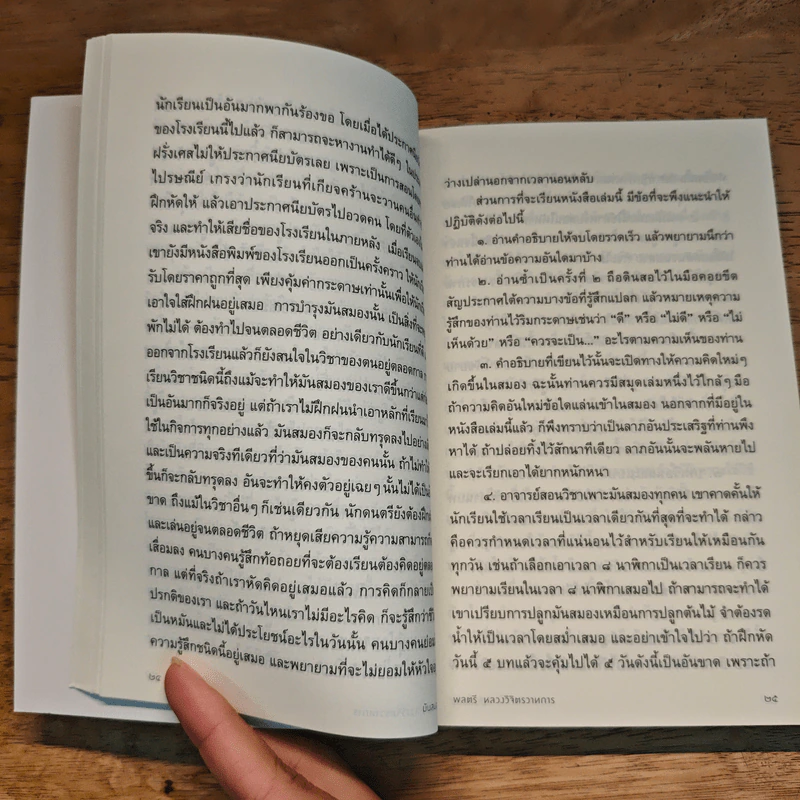 นักเรียนเป็นอันมากพากันร้องขอ โดยเมื่อได้ประกาศนียบัตร
ของโรงเรียนนี้ไปแล้ว ก็สามารถจะหางานทำได้ดีๆ
ฝรั่งเศสไม่ให้ประกาศนียบัตรเลย เพราะเป็นการสอน
ไปรษณีย์ เกรงว่านักเรียนที่เกียจคร้านจะวานคน
ฝึกหัดให้ แล้วเอาประกาศนียบัตรไปอวดคน โดยที่
จริง และทำให้เสียชื่อของโรงเรียนในภายหลัง เมื่อ
เขายังมีหนังสือพิมพ์ของโรงเรียนออกเป็นครั้งคราว
รับโดยราคาถูกที่สุด เพียงคุ้มค่ากระดาษเท่านั้นเพื่อให้
เอาใจใส่ฝึกฝนอยู่เสมอ การบำรุงมันสมองนั้น เป็นสิ่งที่
พักไม่ได้ ต้องทำไปจนตลอดชีวิต อย่างเดียวกับนักเรียนที่
ออกจากโรงเรียนแล้วก็ยังสนใจในวิชาของตนอยู่ตลอดกาล
เรียนวิชาชนิดนี้ถึงแม้จะทำให้มันสมองของเราดีขึ้นกว่า
เป็นอันมากก็จริงอยู่ แต่ถ้าเราไม่ฝึกฝนนำเอาหลักที่เรียน
ใช้ในกิจการทุกอย่างแล้ว มันสมองก็จะกลับทรุดลงไป
และเป็นความจริงทีเดียวที่ว่ามันสมองของคนนั้น ถ้าไม่ทำให้
ขึ้นก็จะกลับทรุดลง อันจะทำให้คงตัวอยู่เฉยๆ นั้นไม่ได้เป็น
ขาด ถึงแม้ในวิชาอื่นๆ ก็เช่นเดียวกัน นักดนตรียังต้องฝึก
และเล่นอยู่จนตลอดชีวิต ถ้าหยุดเสียความรู้ความสามารถก็
เสื่อมลง คนบางคนรู้สึกท้อถอยที่จะต้องเรียนต้องคิดอยู่ตลอด
กาล แต่ที่จริงถ้าเราหัดคิดอยู่เสมอแล้ว การคิดก็กลายเป็น
ปรกติของเรา และถ้าวันไหนเราไม่มีอะไรคิด ก็จะรู้สึกว่า
เป็นหมันและไม่ได้ประโยชน์อะไรในวันนั้น คนบางคนย่อม
ความรู้สึกชนิดนี้อยู่เสมอ และพยายามที่จะไม่ยอมให้หัวใจ
๒๔
ว่างเปล่านอกจากเวลานอนหลับ
ส่วนการที่จะเรียนหนังสือเล่มนี้ มีข้อที่จะพึงแนะนำให้
ปฏิบัติดังต่อไปนี้
๑. อ่านคำอธิบายให้จบโดยรวดเร็ว แล้วพยายามนึกว่า
ท่านได้อ่านข้อความอันใดมาบ้าง
๒. อ่านซ้ำเป็นครั้งที่ ๒ ถือดินสอไว้ในมือคอยขีด
สัญประกาศใต้ความบางข้อที่รู้สึกแปลก แล้วหมายเหตุความ
รู้สึกของท่านไว้ริมกระดาษเช่นว่า “ดี” หรือ “ไม่ดี” หรือ “ไม่
เห็นด้วย” หรือ “ควรจะเป็น...” อะไรตามความเห็นของท่าน
๓. คำอธิบายที่เขียนไว้นั้นจะเปิดทางให้ความคิดใหม่ๆ
เกิดขึ้นในสมอง ฉะนั้นท่านควรมีสมุดเล่มหนึ่งไว้ใกล้ๆ มือ
ถ้าความคิดอันใหม่ข้อใดแล่นเข้าในสมอง นอกจากที่มีอยู่ใน
หนังสือเล่มนี้แล้ว ก็พึงทราบว่าเป็นลาภอันประเสริฐที่ท่านพึง
หาได้ ถ้าปล่อยทิ้งไว้สักนาทีเดียว ลาภอันนั้นจะพลันหายไป
และจะเรียกเอาได้ยากหนักหนา
๔. อาจารย์สอนวิชาเพาะมันสมองทุกคน เขาคาดคั้นให้
นักเรียนใช้เวลาเรียนเป็นเวลาเดียวกันที่สุดที่จะทำได้ กล่าว
คือควรกำหนดเวลาที่แน่นอนไว้สำหรับเรียนให้เหมือนกัน
ทุกวัน เช่นถ้าเลือกเอาเวลา ๘ นาฬิกาเป็นเวลาเรียน ก็ควร
พยายามเรียนในเวลา ๘ นาฬิกาเสมอไป ถ้าสามารถจะทำได้
เขาเปรียบการปลูกมันสมองเหมือนการปลูกต้นไม้ จำต้องรด
น้ำให้เป็นเวลาโดยสม่ำเสมอ และอย่าเข้าใจไปว่า ถ้าฝึกหัด
วันนี้ ๕ บทแล้วจะคุ้มไปได้ ๕ วันดังนี้เป็นอันขาด เพราะถ้า
พลตรี หลวงวิจิตรวาทการ
๒๕